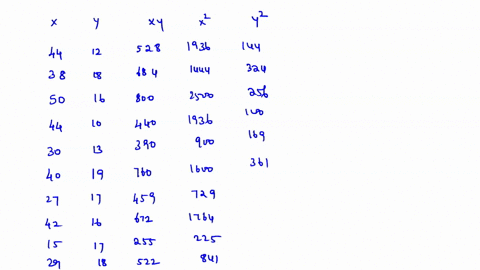 x y xy x² y²
44 12 528 1936 144
38 18 684 1444 324
50 16 800 2500 256
44 10 440 1936 100
30 13 390 900 169
40 19 760 1600 361
27 17 459 729
42 16 672 1764
15 17 255 225
29 18 522 841